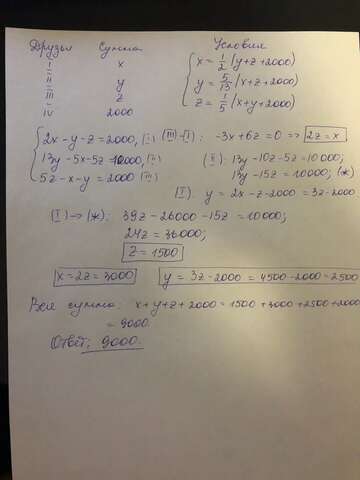 Друзья Сумма Условия
I x x = 1/2 (y+z+2000)
II y y = 5/13 (x+z+2000)
III z z = 1/5 (x+y+2000)
IV 2000
2x-y-z=2000, (I) (III)-(I): -3x+6z=0 => 2z=x.
13y-5x-5z=10000, (II) (II): 13y-10z-5z=10000;
5z-x-y=2000 (III) 13y-15z=10000; (ж)
(I): y=2x-z-2000=3z-2000
(I)→(ж): 39z-26000-15z=10000;
24z=36000;
z=1500
x=2z=3000 y=3z-2000=4500-2000=2500
Вся сумма: x+y+z+2000=1500+3000+2500+2000
=9000.
Ответ: 9000.